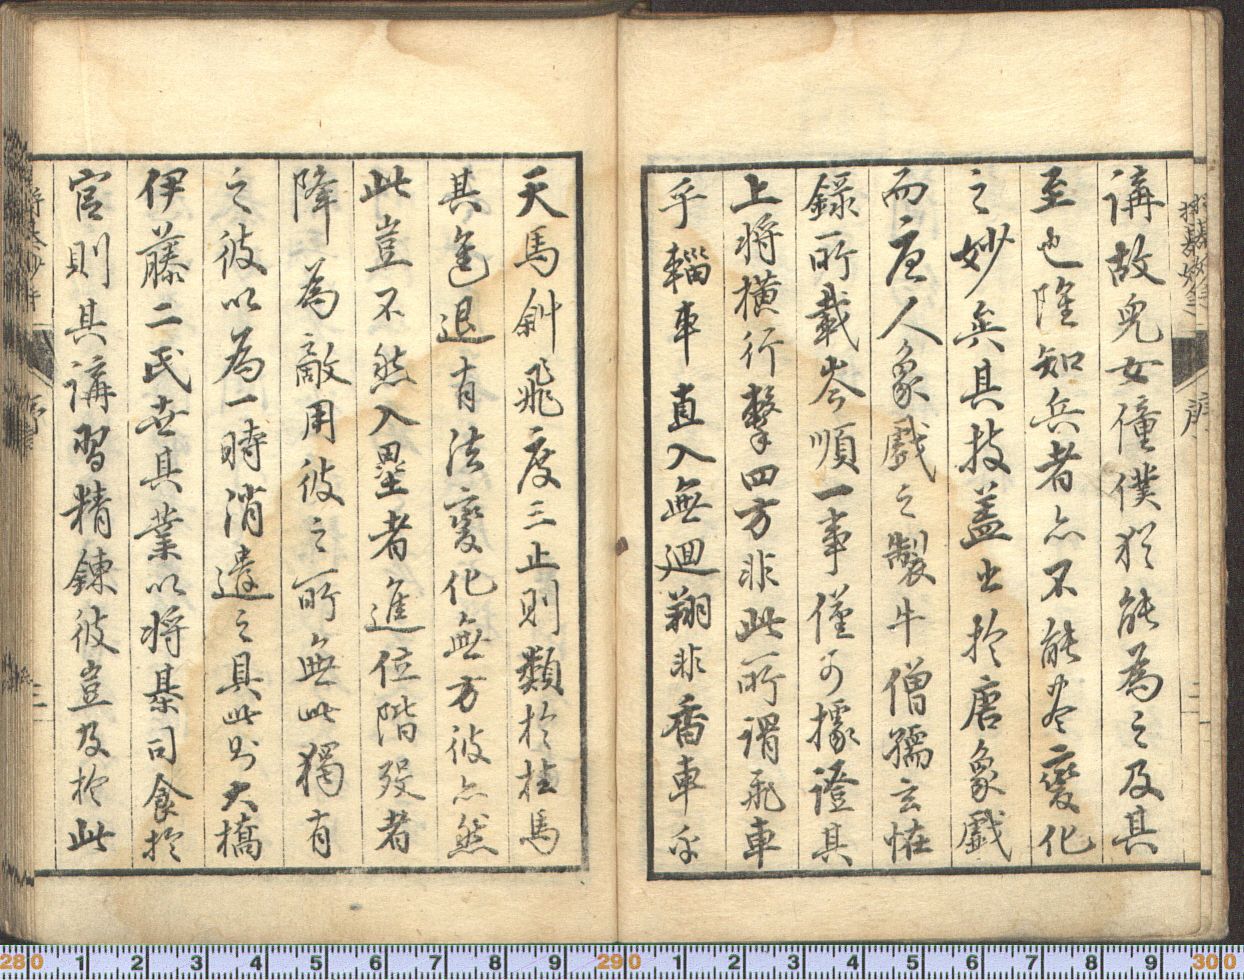 講故児女僮僕犹能為之及其
至也雖知兵者亦不能尽変化
之妙矣其技蓋出於唐象戯
而唐人象戯之製牛僧孺玄怪
録所載岑順一事僅可據證其
上将横行撃四方非此所謂飛車
乎輜車直入無廻翔非香車乎
天馬斜飛度三止則類於桂馬
其進退有法変化無方彼亦然
此豈不然入壘者進位階殁者
降為敵用彼之所無此獨有
之彼以為一時消遣之具此則大橋
伊藤二氏世其業以将棊司食於
官則其講習精錬彼豈及於此
序
二
序
三
280 1 2 3 4 5 6 7 8 9 290 1 2 3 4 5 6 7 8 9 300